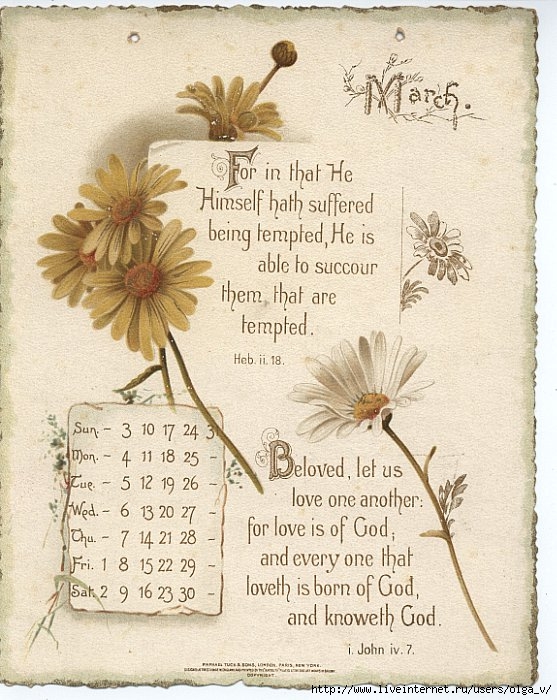 March.
For in that He
Himself hath suffered
being tempted, He is
able to succour
them, that are
tempted.
Heb. ii. 18.
Sun. – 3 10 17 24 3
Mon. – 4 11 18 25 –
Tue. – 5 12 19 26 –
Wed. – 6 13 20 27 –
Thu. – 7 14 21 28 –
Fri. 1 8 15 22 29 –
Sat. 2 9 16 23 30 –
Beloved, let us
love one another:
for love is of God;
and every one that
loveth is born of God,
and knoweth God.
i. John iv. 7.
RAPHAEL TUCK & SONS, LONDON, PARIS, NEW YORK.
COPYRIGHT
http://www.liveinternet.ru/users/olga_v/